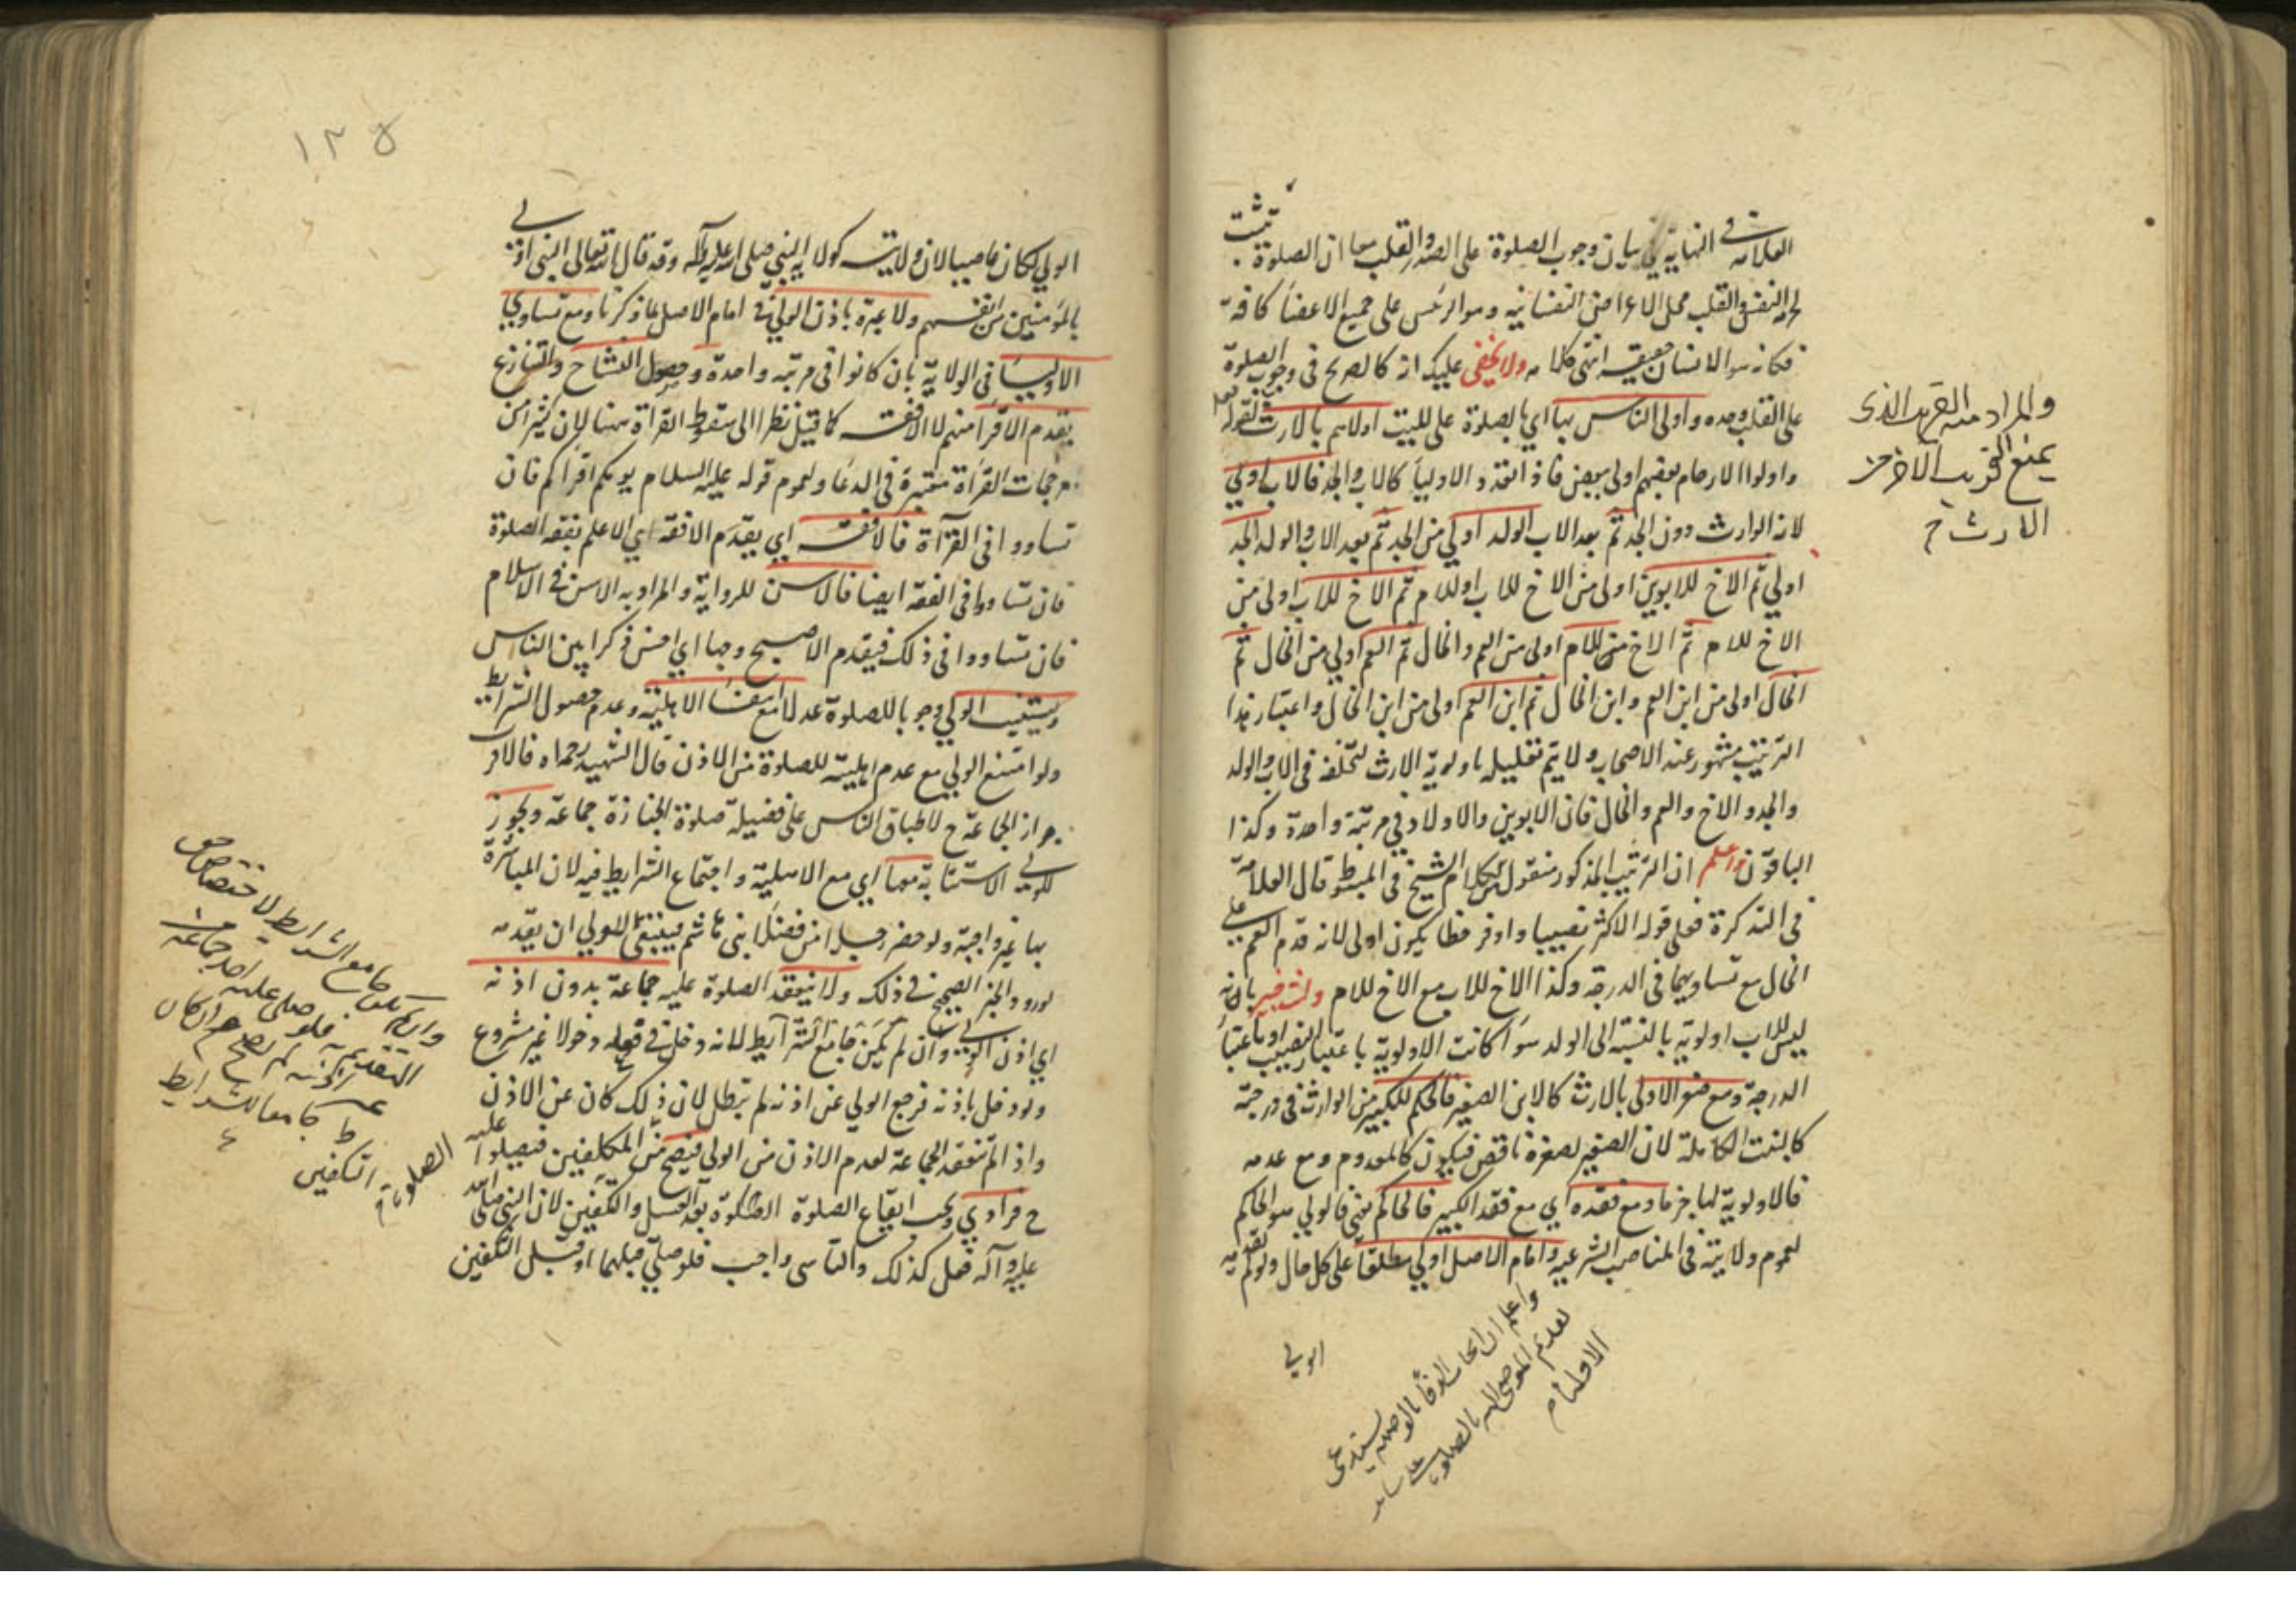 العلامة في النهاية في بيان وجوب الصلوة على الصدر والقلب معا ان الصلوة تثبت
لحرمة النفس والقلب محل الاعراض النفسانية وهو الرئس على جميع الاعضا كافة
فكانه هو الانسان حقيقة انتهى كلامه ولا يخفى عليك انه كالصريح في وجوب الصلوة
على القلب وحده واولى الناس بها اي بالصلوة على الميت اولاهم بالارث لقوله تعالى
واولوا الارحام بعضهم اولى ببعض فاذا تعدد الاوليا كالاب والجد فالاب اولى
لانه الوارث دون الجد ثم بعد الاب الولد اولي من الجد ثم بعد الاب والولد الجد
اولي ثم الاخ للابوين اولى من الاخ للاب او للام ثم الاخ للاب اولى من
الاخ للام ثم الاخ من الام اولى من العم والخال ثم العم اولي من الخال ثم
الخال اولى من ابن العم وابن الخال ثم ابن العم اولى من ابن الخال واعتبار هذا
الترتيب مشهور عند الاصحاب ولا يتم تعليله باولوية الارث لتخلفه في الاب والولد
والجد والاخ والعم والخال فان الابوين والاولاد في مرتبة واحدة وكذا
الباقون واعلم ان الترتيب المذكور منقول من كلام الشيخ في المبسوط قال العلامة
في التذكرة فعلى قوله الاكثر نصيبا واوفر حظا يكون اولى لانه قدم العم على
الخال مع تساويهما في الدرجة وكذا الاخ للاب مع الاخ للام ولنت خبير بانه
ليس للاب اولوية بالنسبة الى الولد سوا كانت الاولوية باعتبار النصيب او باعتبار
الدرجة ومع صغر الاولى بالارث كالابن الصغير فالحكم للكبير من الوارث في درجته
كالبنت الكاملة لان الصغير لصغره ناقص فيكون كالمعدوم ومع عدمه
فالاولوية لها جزما ومع فقده اي مع فقد الكبير فالحاكم يعني فالولي هو الحاكم
لعموم ولايته في المناصب الشرعية وامام الاصل اولي مطلقا على كل حال ولو لم يقدمه
الولي
والمراد منه القريب الذي
يمنع القريب الآخر من
الارث
واعلم ان
الاحكام
١٢٥
الولي لكان غاصبا لان ولايته كولاية النبي صلى الله عليه وآله وقد قال الله تعالى النبي اولى
بالمؤمنين من انفسهم ولا عبرة باذن الولي في امام الاصل لما ذكرنا ومع تساوي
الاوليا في الولاية بان كانوا في مرتبة واحدة وحصول التشاح والتنازع
يقدم الاقرا منهم لا الافقه كما قيل نظرا الى سقوط القراة هنا لان كثيرا من
مرجحات القراة معتبرة في الدعا ولعموم قوله عليه السلام يومكم اقراكم فان
تساووا في القرآة فالافقه اي يقدم الافقه اي الاعلم بفقه الصلوة
فان تساووا في الفقه ايضا فالاسن للرواية والمراد به الاسن في الاسلام
فان تساووا في ذلك فيقدم الاصبح وجها اي احسن ذكرا بين الناس
ويستنيب الولي وجوبا للصلوة عدلا مع انتفا الاهلية وعدم حصول الشرايط
ولو امتنع الولي مع عدم اهليته للصلوة من الاذن قال الشهيد رحمه الله فالاقرب
جواز الجماعة ح لاطباق الناس على فضيلة صلوة الجنازة جماعة ويجوز
للولي الاستنابة معها اي مع الاهلية واجتماع الشرايط فيه لان المباشرة
بها غير واجبة ولو حضر رجل من فضلا بني هاشم فينبغي للولي ان يقدمه
لورود الخبر الصحيح في ذلك ولا تنعقد الصلوة عليه جماعة بدون اذنه
اي اذن الولي وان لم يكن جامع الشرايط لانه دخل في فعله دخولا غير مشروع
ولو دخل باذنه فرجع الولي عن اذنه لم تبطل لان ذلك كان عن الاذن
واذا لم تنعقد الجماعة لعدم الاذن من الولي فيصح من المكلفين فيصلوا عليه
ح فرادي ويجب ايقاع الصلوة بعد الغسل والتكفين لان النبي صلى الله
عليه وآله فعل كذلك والتاسي واجب فلو صلي قبلهما او قبل التكفين
وان لم يكن جامع الشرايط لاختصاص حق
التقديم به فلو صلى عليه احد جماعة
كجامع الشرايط
التكفين